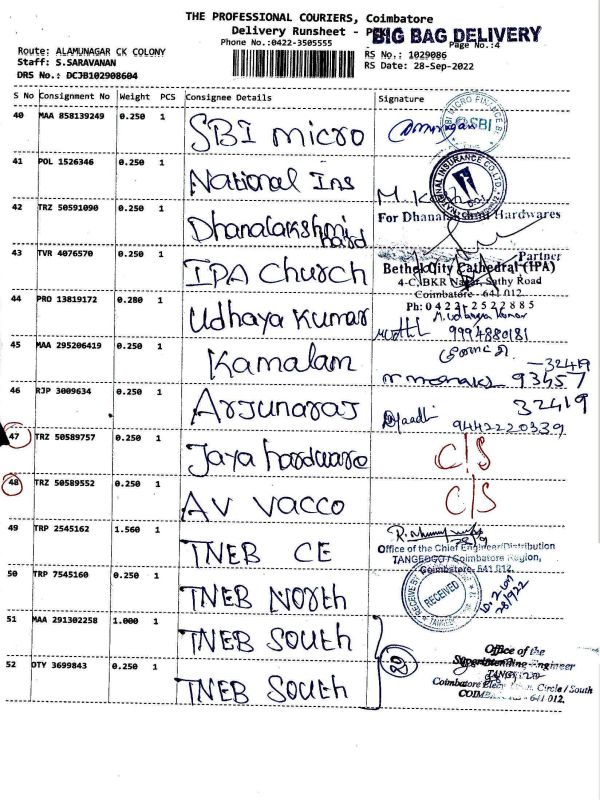 THE PROFESSIONAL COURIERS, Coimbatore
Delivery Runsheet - P
BIG BAG DELIVERY
Phone No.:0422-3505555
Page No.:4
Route: ALAMUNAGAR CK COLONY
RS No.: 1029086
Staff: S.SARAVANAN
RS Date: 28-Sep-2022
DRS No.: DCJB102908604
S No Consignment No Weight PCS Consignee Details Signature
40 MAA 858139249 0.250 1 SBI micro
SBI
41 POL 1526346 0.250 1 National Ins
NATIONAL INSURANCE CO. LTD.
42 TRZ 50591090 0.250 1 Dhanalakshmi hard
For Dhanalakshmi Hardwares
Partner
43 TVR 4076570 0.250 1 IPA church
Bethel City Cathedral (IPA)
4-C, BKR Nagar, Sathy Road
Coimbatore - 641 012.
Ph: 0422-2522885
44 PRO 13819172 0.280 1 Udhaya Kumar
M. Udhaya Kumar
9994880181
45 MAA 295206419 0.250 1 Kamalam
93457
-32419
46 RJP 3009634 0.250 1 Arjunaraj
32419
9442220339
47 TRZ 50589757 0.250 1 Jaya hardware C/S
48 TRZ 50589552 0.250 1 AV Vacco C/S
49 TRP 2545162 1.560 1 TNEB CE
28/9
Office of the Chief Engineer/Distribution
TANGEDCO / Coimbatore Region,
Coimbatore- 641 012.
50 TRP 7545160 0.250 1 TNEB North
RECEIVED
51 MAA 291302258 1.000 1 TNEB South
52 OTY 3699843 0.250 1 TNEB South
Office of the
Superintending Engineer
Circle / South
641 012.